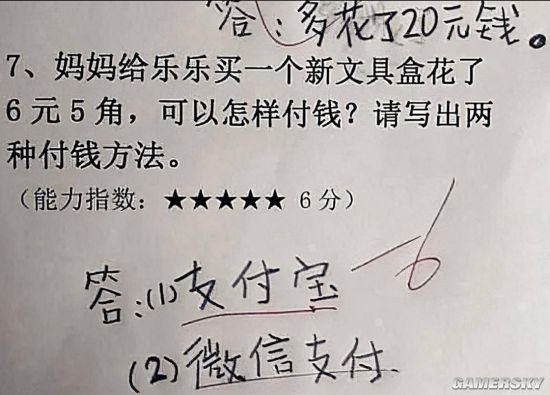 答：多花了20元钱。
7、妈妈给乐乐买一个新文具盒花了
6元5角，可以怎样付钱？请写出两
种付钱方法。
（能力指数：★★★★★ 6分）
-6
答：(1)支付宝
(2)微信支付.
GAMERSKY